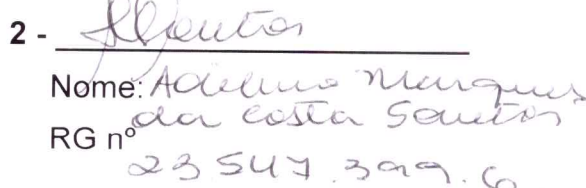 2 - Santos
Nome: Adelino Marques
da Costa Santos
RG nº
23.547.399.6